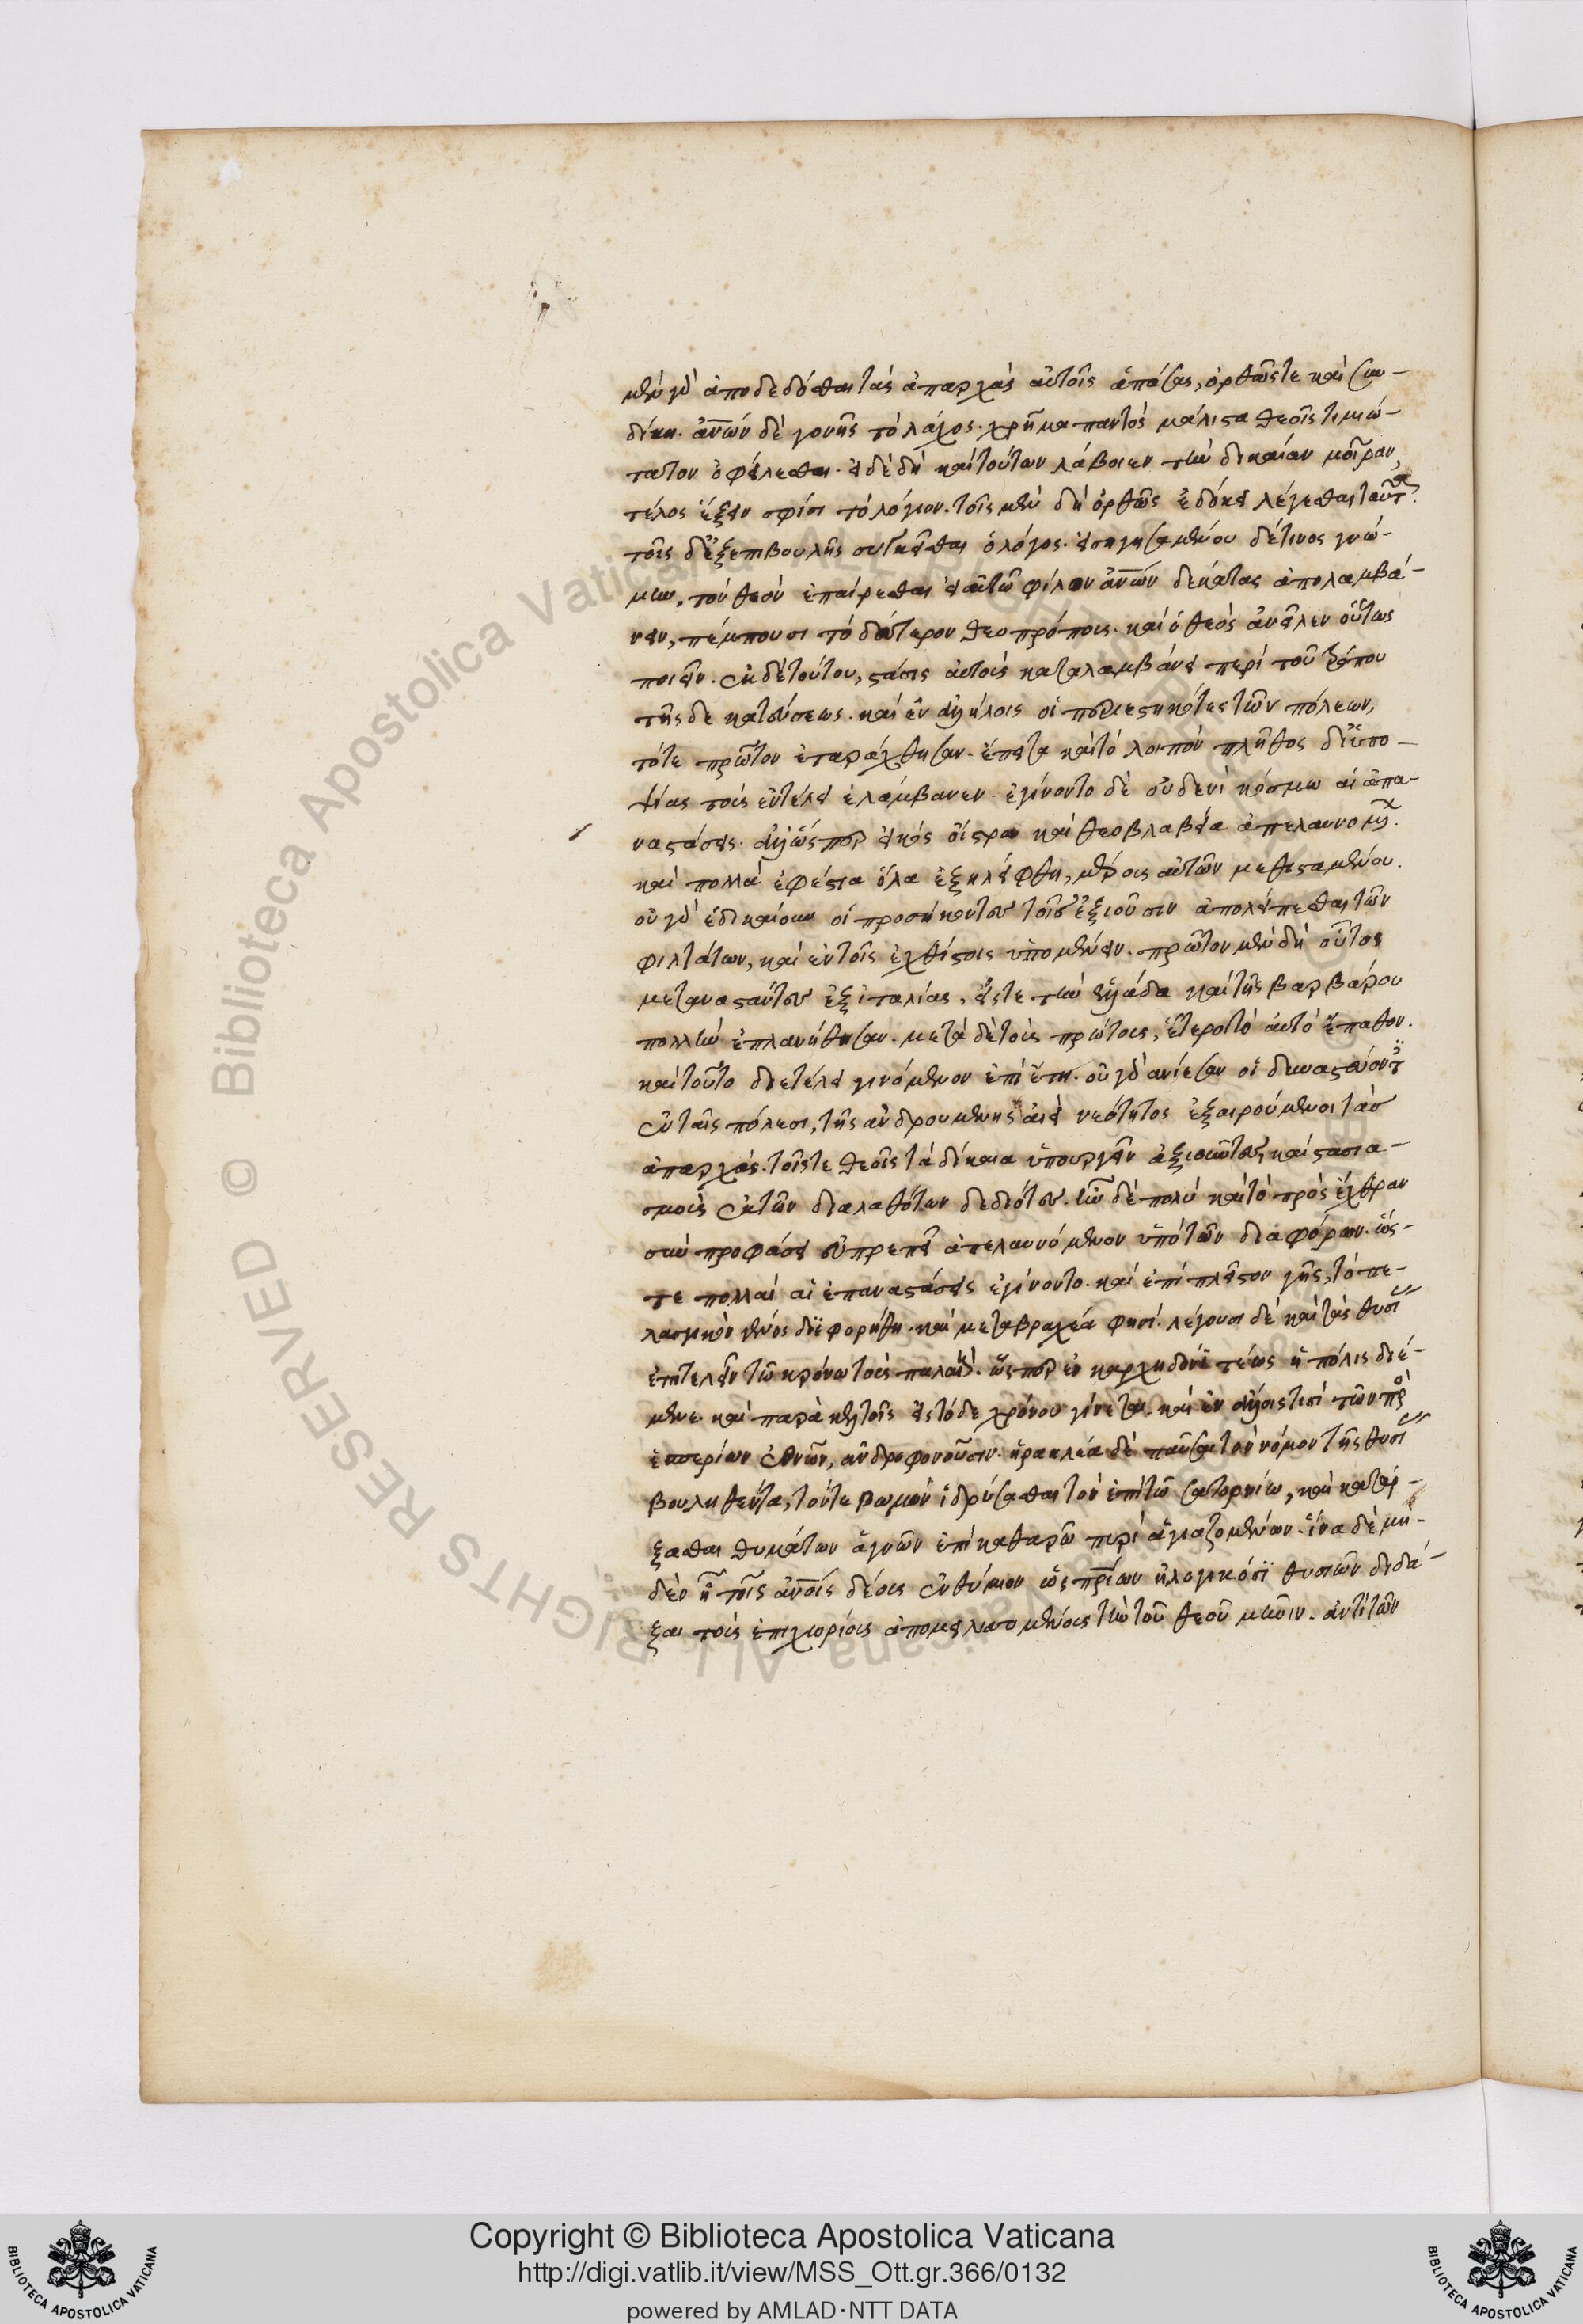 μὲν γὰρ ἀποδεδόσθαι τὰς ἀπαρχὰς αὐτοῖς ἁπάσας, ὀρθῶς τε καὶ σὺν
δίκῃ. ἀνων δὲ γονῆς τὸ λάχος. χρῆμα παντὸς μάλιστα θεοῖς τιμιώ-
τατον ὀφείλεσθαι. εἰ δὲ δὴ καὶ τούτων λάβοιεν τὴν δικαίαν μοῖραν,
τέλος ἕξειν σφίσι τὸ λόγιον. τοῖς μὲν δὴ ὀρθῶς ἐδόκει λέγεσθαι ταῦτα.
τοῖς δ' ἐξ ἐπιβουλῆς συγκεῖσθαι ὁ λόγος. εἰσηγησαμένου δέ τινος γνώ-
μην, τὸν θεὸν ἐπαίρεσθαι εἰ αὐτῷ φίλον ἀνων δεκάτας ἀπολαμβά-
νειν, πέμπουσι τὸ δεύτερον θεοπρόπους. καὶ ὁ θεὸς ἀνεῖλεν οὕτως
ποιεῖν. ἐκ δὲ τούτου, στάσις αὐτοὺς καταλαμβάνει περὶ τοῦ τρόπου
τῆς δεκατεύσεως. καὶ ἐν ἀλλήλοις οἱ προεστηκότες τῶν πόλεων,
τότε πρῶτον ἐταράχθησαν. ἔπειτα καὶ τὸ λοιπὸν πλῆθος δι' ὑπο-
ψίας τοὺς ἐν τέλει ἐλάμβανεν. ἐγίνοντο δὲ οὐδενὶ κόσμω αἱ ἀπα-
ναστάσεις. ἀλλ' ὥσπερ εἰκὸς οἴστρω καὶ θεοβλαβεία ἀπελαυνομ
καὶ πολλὰ ἐφέστια ὅλα ἐξηλείφθη, μέρους αὐτῶν μεθισταμένου.
οὐ γὰρ ἐδικαίουν οἱ προσήκοντες τοῖς ἐξιοῦσιν ἀπολείπεσθαι τῶν
φιλτάτων, καὶ ἐν τοῖς ἐχθίστοις ὑπομένειν. πρῶτον μὲν δὴ οὗτοι
μεταναστάντες ἐξ ἰταλίας, εἴς τε τὴν ἑλλάδα καὶ τῆς βαρβάρου
πολλὴν ἐπλανήθησαν. μετὰ δὲ τοὺς πρώτους, ἕτεροι τὸ αὐτὸ ἔπαθον.
καὶ τοῦτο διετέλει γινόμενον ἐπὶ ἔτη. οὐ γὰρ ἀνίεσαν οἱ δυναστεύοντες
ἐν ταῖς πόλεσι, τῆς ἀνδρουμένης ἀεὶ νεότητος ἐξαιρούμενοι τὰς
ἀπαρχάς. τοῖς τε θεοῖς τὰ δίκαια ὑπουργεῖν ἀξιοῦντες, καὶ στασια-
σμοὺς ἐκ τῶν διαλαθόντων δεδιότες. ἦν δὲ πολὺ καὶ τὸ πρὸς ἔχθραν
σὺν προφάσει εὐπρεπεῖ ἀπελαυνόμενον ὑπὸ τῶν διαφόρων. ὥς-
τε πολλαὶ αἱ ἐπαναστάσεις ἐγίνοντο. καὶ ἐπὶ πλεῖστον γῆς, τὸ πε-
λασγικὸν γένος διεφορήθη. καὶ μετα βραχέα φησί. λέγουσι δὲ καὶ τὰς θυσί
ἐπιτελεῖν τῷ κρόνω τοὺς παλαι. ὥσπερ ἐν καρχηδόνι τέως ἡ πόλις διέ-
μεινε. καὶ παρὰ κελτοῖς εἰς τόδε χρόνου γίνεται. καὶ ἐν ἄλλοις τισὶ τῶν πρὸς
ἑσπερίων ἐθνῶν, ἀνδροφονοῦσιν. ἡρακλέα δὲ παῦσαι τὸν νόμον τῆς θυσί
βουληθέντα, τόν τε βωμὸν ἱδρύσασθαι τὸν ἐπὶ τῷ σατορνίω, καὶ κατάρ-
ξασθαι θυμάτων ἁγνῶν ἐπὶ καθαρῷ πυρὶ ἁγιαζομένων. ἵνα δὲ μη-
δὲν ᾖ τοῖς ἀνοις δέος ἐνθύμιον ὡς πρίων ἠλογικόσι θυσιῶν διδά-
ξαι τοὺς ἐπιχωρίους ἀπομειλισσομένους τὴν τοῦ θεοῦ μῆνιν. ἀντὶ τῶν